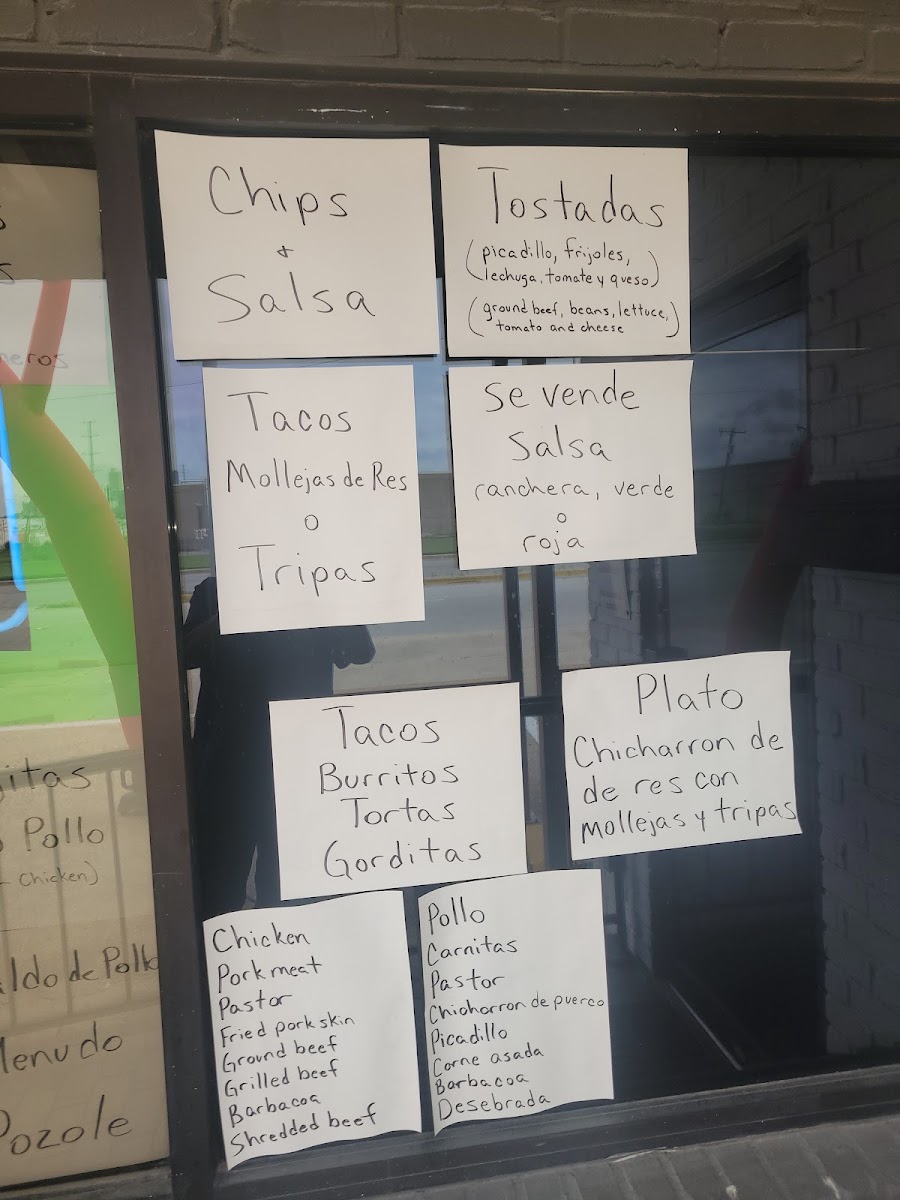 Chips
+
Salsa
Tostadas
(picadillo, frijoles,
lechuga, tomate y queso)
(ground beef, beans, lettuce,
tomato and cheese
Tacos
Mollejas de Res
o
Tripas
Se vende
Salsa
ranchera, verde
o
roja
Tacos
Burritos
Tortas
Gorditas
Plato
Chicharron de
de res con
mollejas y tripas
Chicken
Pork meat
Pastor
Fried pork skin
Ground beef
Grilled beef
Barbacoa
Shredded beef
Pollo
Carnitas
Pastor
Chicharron de puerco
Picadillo
Carne asada
Barbacoa
Desebrada
Pollo
Chicken)
ldo de Pollo
Menudo
Pozole